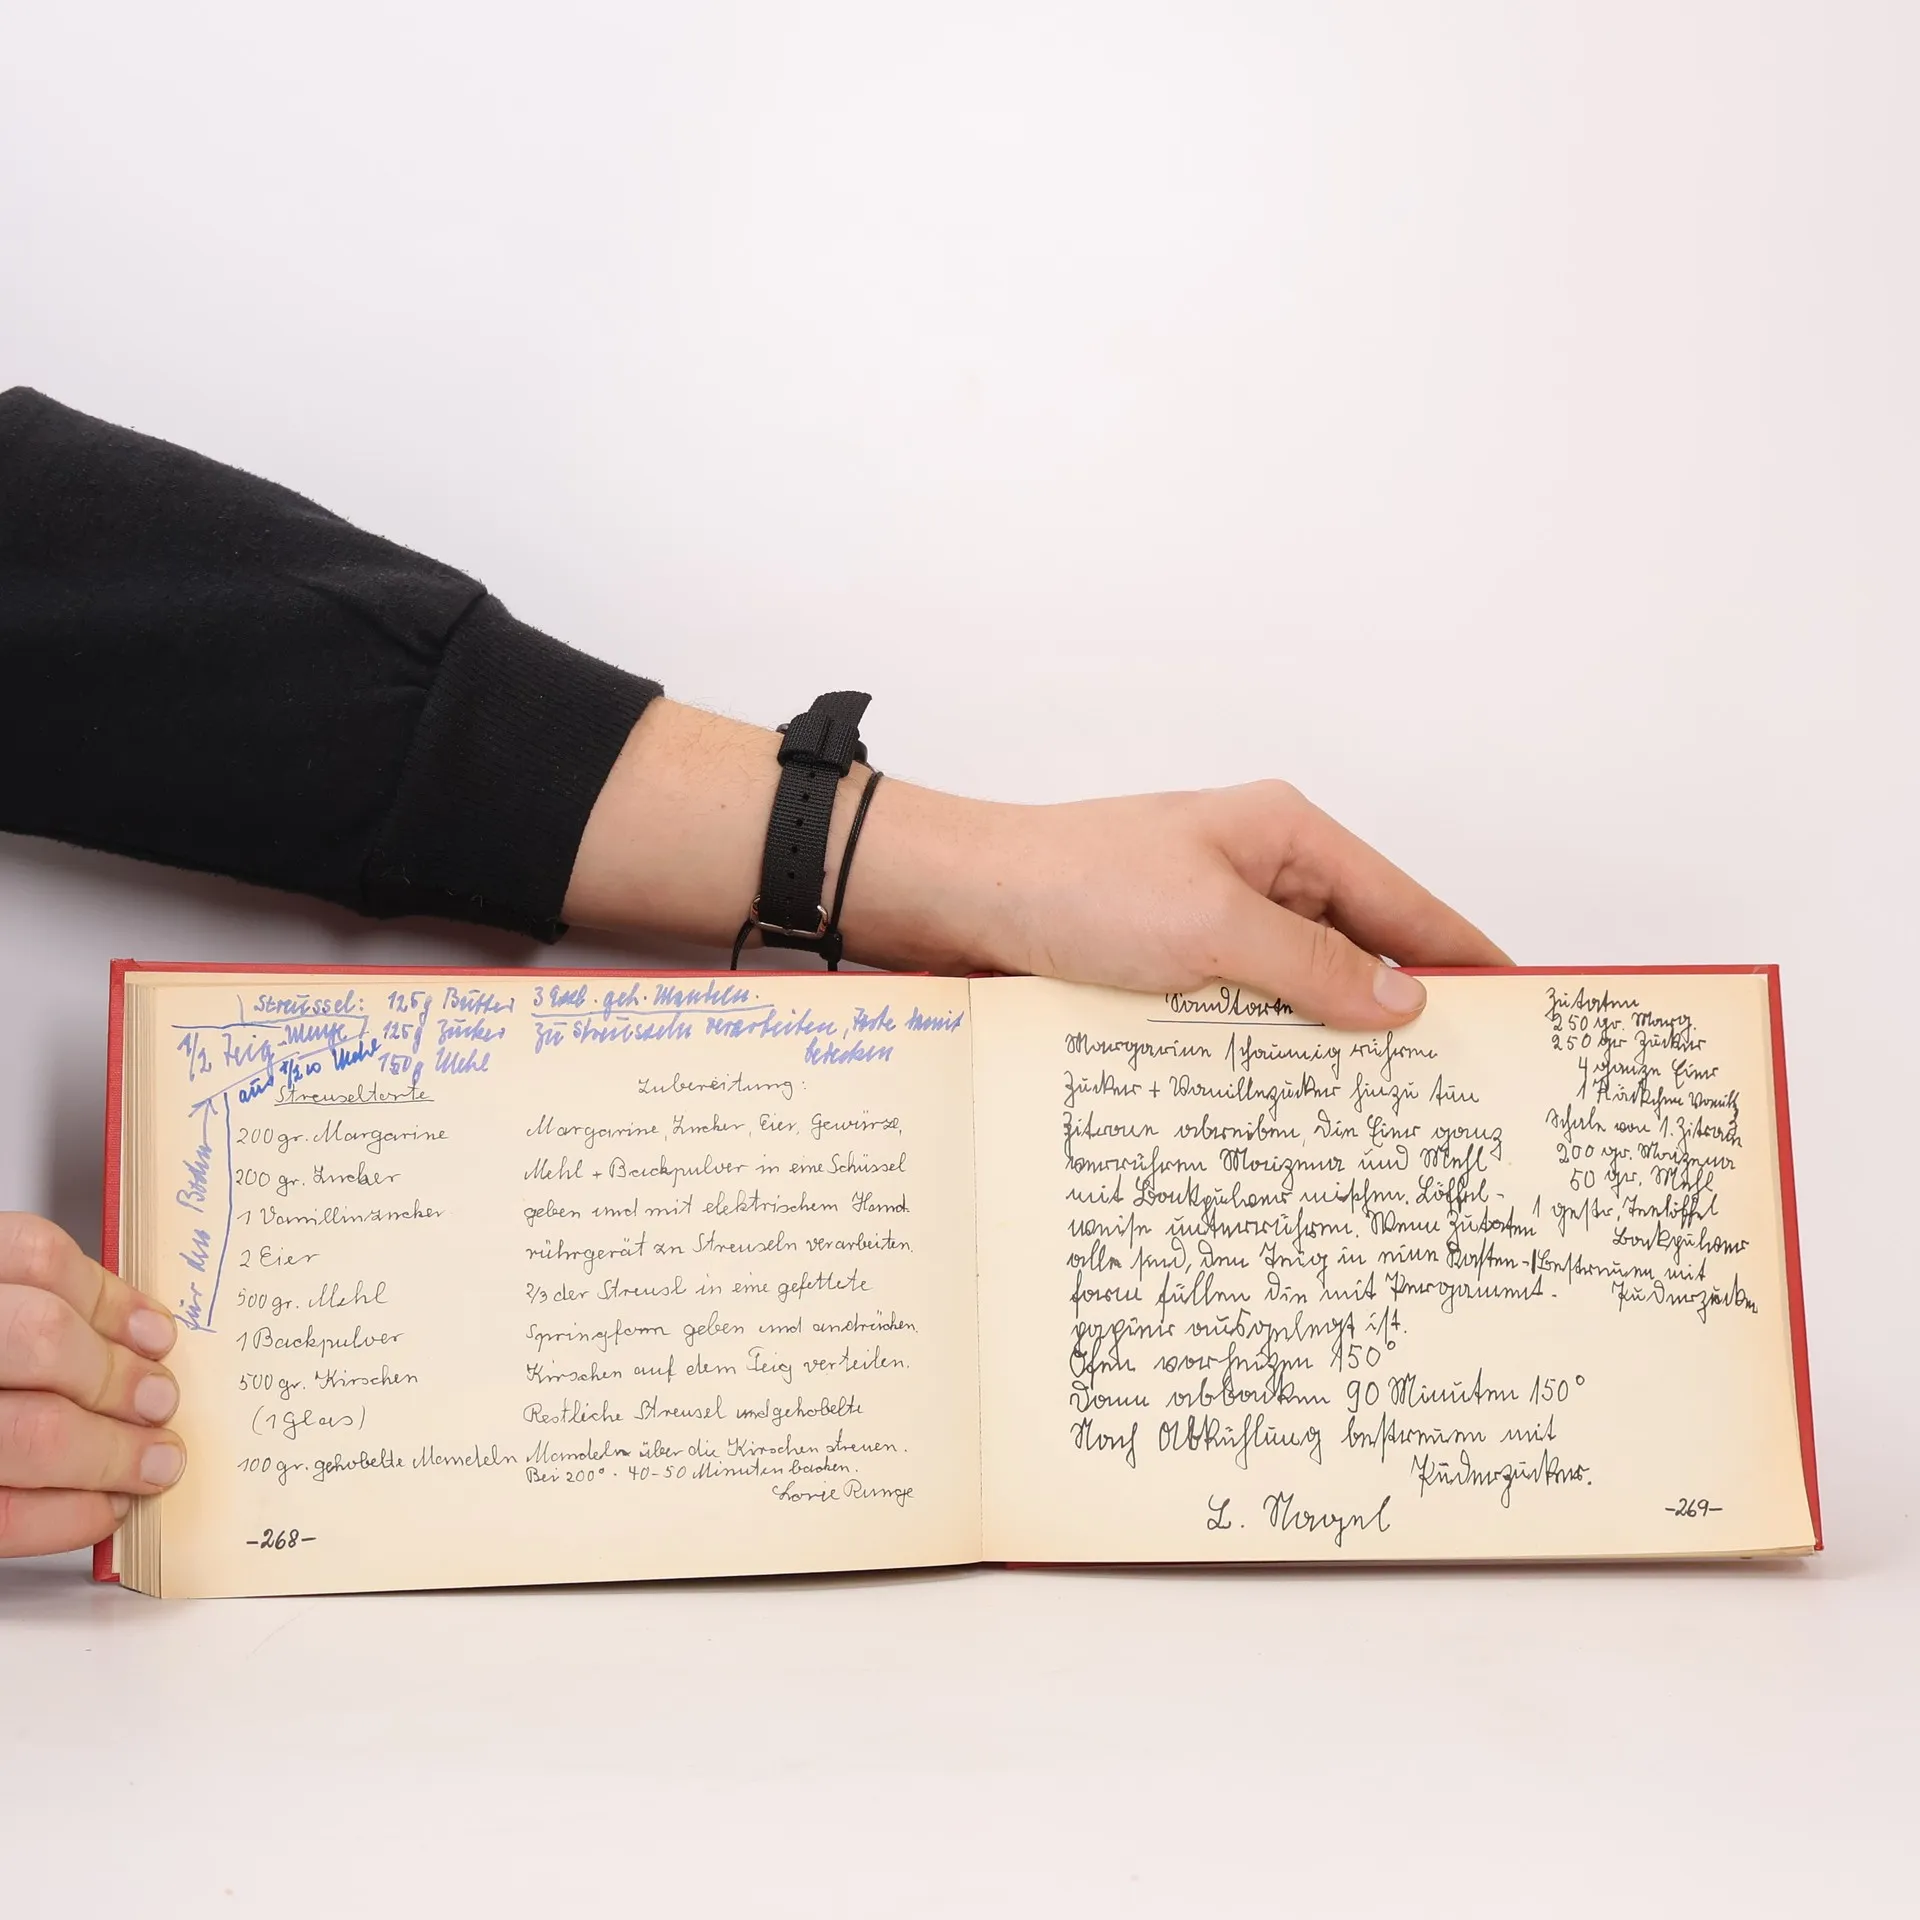 Streussel: 125g Butter 3 Essl. geh. Mandeln.
1/2 Teig-Menge 125g Zucker zu Streusseln verarbeiten, Torte damit
aus 1/2 10 Mehl 150g Mehl bedecken
für den Boden
Streuseltorte
200 gr. Margarine
200 gr. Zucker
1 Vanillinzucker
2 Eier
500 gr. Mehl
1 Backpulver
500 gr. Kirschen
(1 Glas)
100 gr. gehobelte Mandeln
Zubereitung:
Margarine, Zucker, Eier, Gewürze,
Mehl + Backpulver in eine Schüssel
geben und mit elektrischem Hand-
rührgerät zu Streuseln verarbeiten.
2/3 der Streusl in eine gefettete
Springform geben und andrücken.
Kirschen auf dem Teig verteilen.
Restliche Streusel und gehobelte
Mandeln über die Kirschen streuen.
Bei 200° . 40-50 Minuten backen.
Runge
-268-
Sandtorte
Margarine schaumig rühren
Zucker + Vanillezucker hinzu tun
Zitrone abreiben, die Eier ganz
verrühren Maizena und Mehl
mit Backpulver mischen. Löffel-
weise unterrühren. Wenn Zutaten
alle sind, den Teig in eine Kasten-
form füllen die mit Pergament-
papier ausgelegt ist.
Ofen vorheizen 150°
Dann abbacken 90 Minuten 150°
Nach Abkühlung bestreuen mit
Puderzucker.
L. Nagel
Zutaten
250 gr. Marg.
250 gr Zucker
4 ganze Eier
1 Päckchen Vanillz
Schale von 1. Zitrone
200 gr. Maizena
50 gr. Mehl
1 gestr. Teelöffel
Backpulver
Bestreuen mit
Puderzucker
-269-